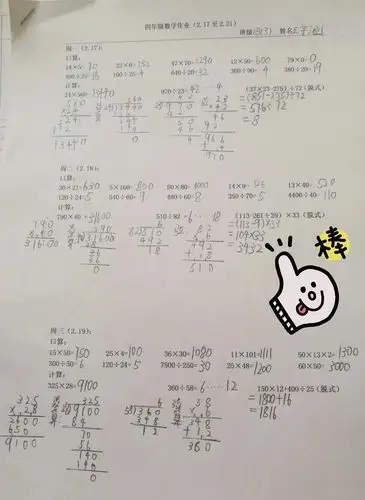 四年级数学作业（2.17至2.21）
周一（2.17）：
口算：
22×6=132 12×50=600 79×0=0
400÷25=16 100÷25=4 640÷20=32 360÷90=4 380÷20=19
计算：
24×560=13440 970÷23=42……4 (37×23-275)÷72（脱式）
=(851-275)÷72
=576÷72
=8
周二（2.18）：
口算：
30×21=630 5×160=800 50×80=4000 13×40=520
120÷24=5 540÷60=9 480÷60=8 350÷70=5 4400÷40=110
计算：
790×40=31600 510÷82=6……18 (113-261÷29)×33（脱式）
=(113-9)×33
=104×33
=3432
棒
周三（2.19）：
口算：
15×50=750 25×4=100 36×30=1080 11×101=1111 50×13×2=1300
300÷50=6 120÷24=5 7500÷250=30 25×48=1200 60×50=3000
计算：
325×28=9100 360÷58=6……12 150×12+400÷25（脱式）
=1800+16
=1816